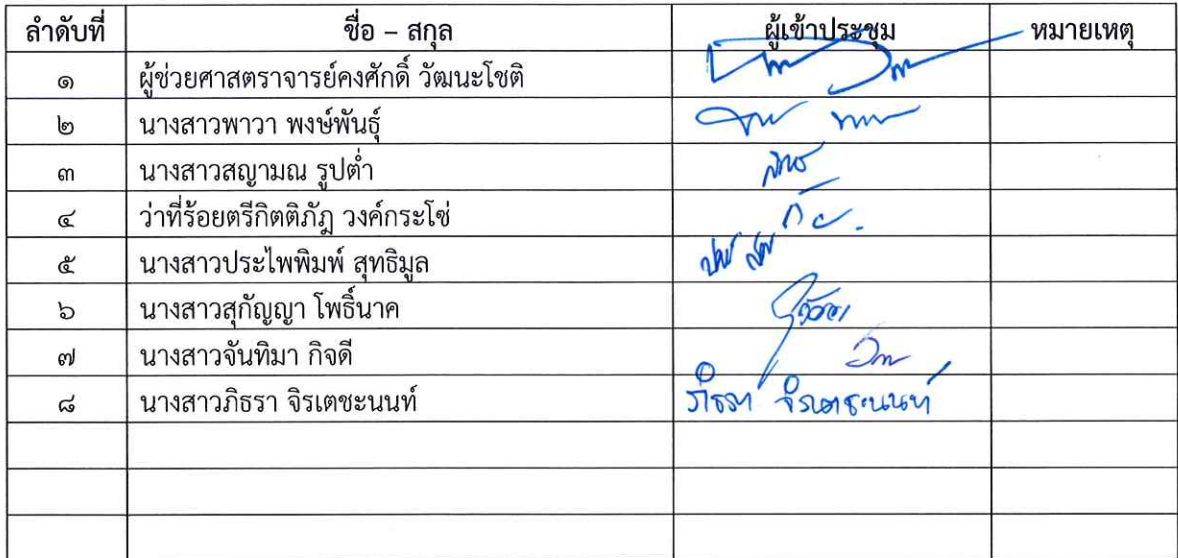 ลำดับที่ ชื่อ – สกุล ผู้เข้าประชุม หมายเหตุ
๑ ผู้ช่วยศาสตราจารย์คงศักดิ์ วัฒนะโชติ
๒ นางสาวพาวา พงษ์พันธุ์
๓ นางสาวสญามณ รูปต่ำ
๔ ว่าที่ร้อยตรีกิตติภัฎ วงค์กระโซ่
๕ นางสาวประไพพิมพ์ สุทธิมูล
๖ นางสาวสุกัญญา โพธิ์นาค
๗ นางสาวจันทิมา กิจดี
๘ นางสาวภิธรา จิรเตชะนนท์ ภิธรา จิรเตชะนนท์